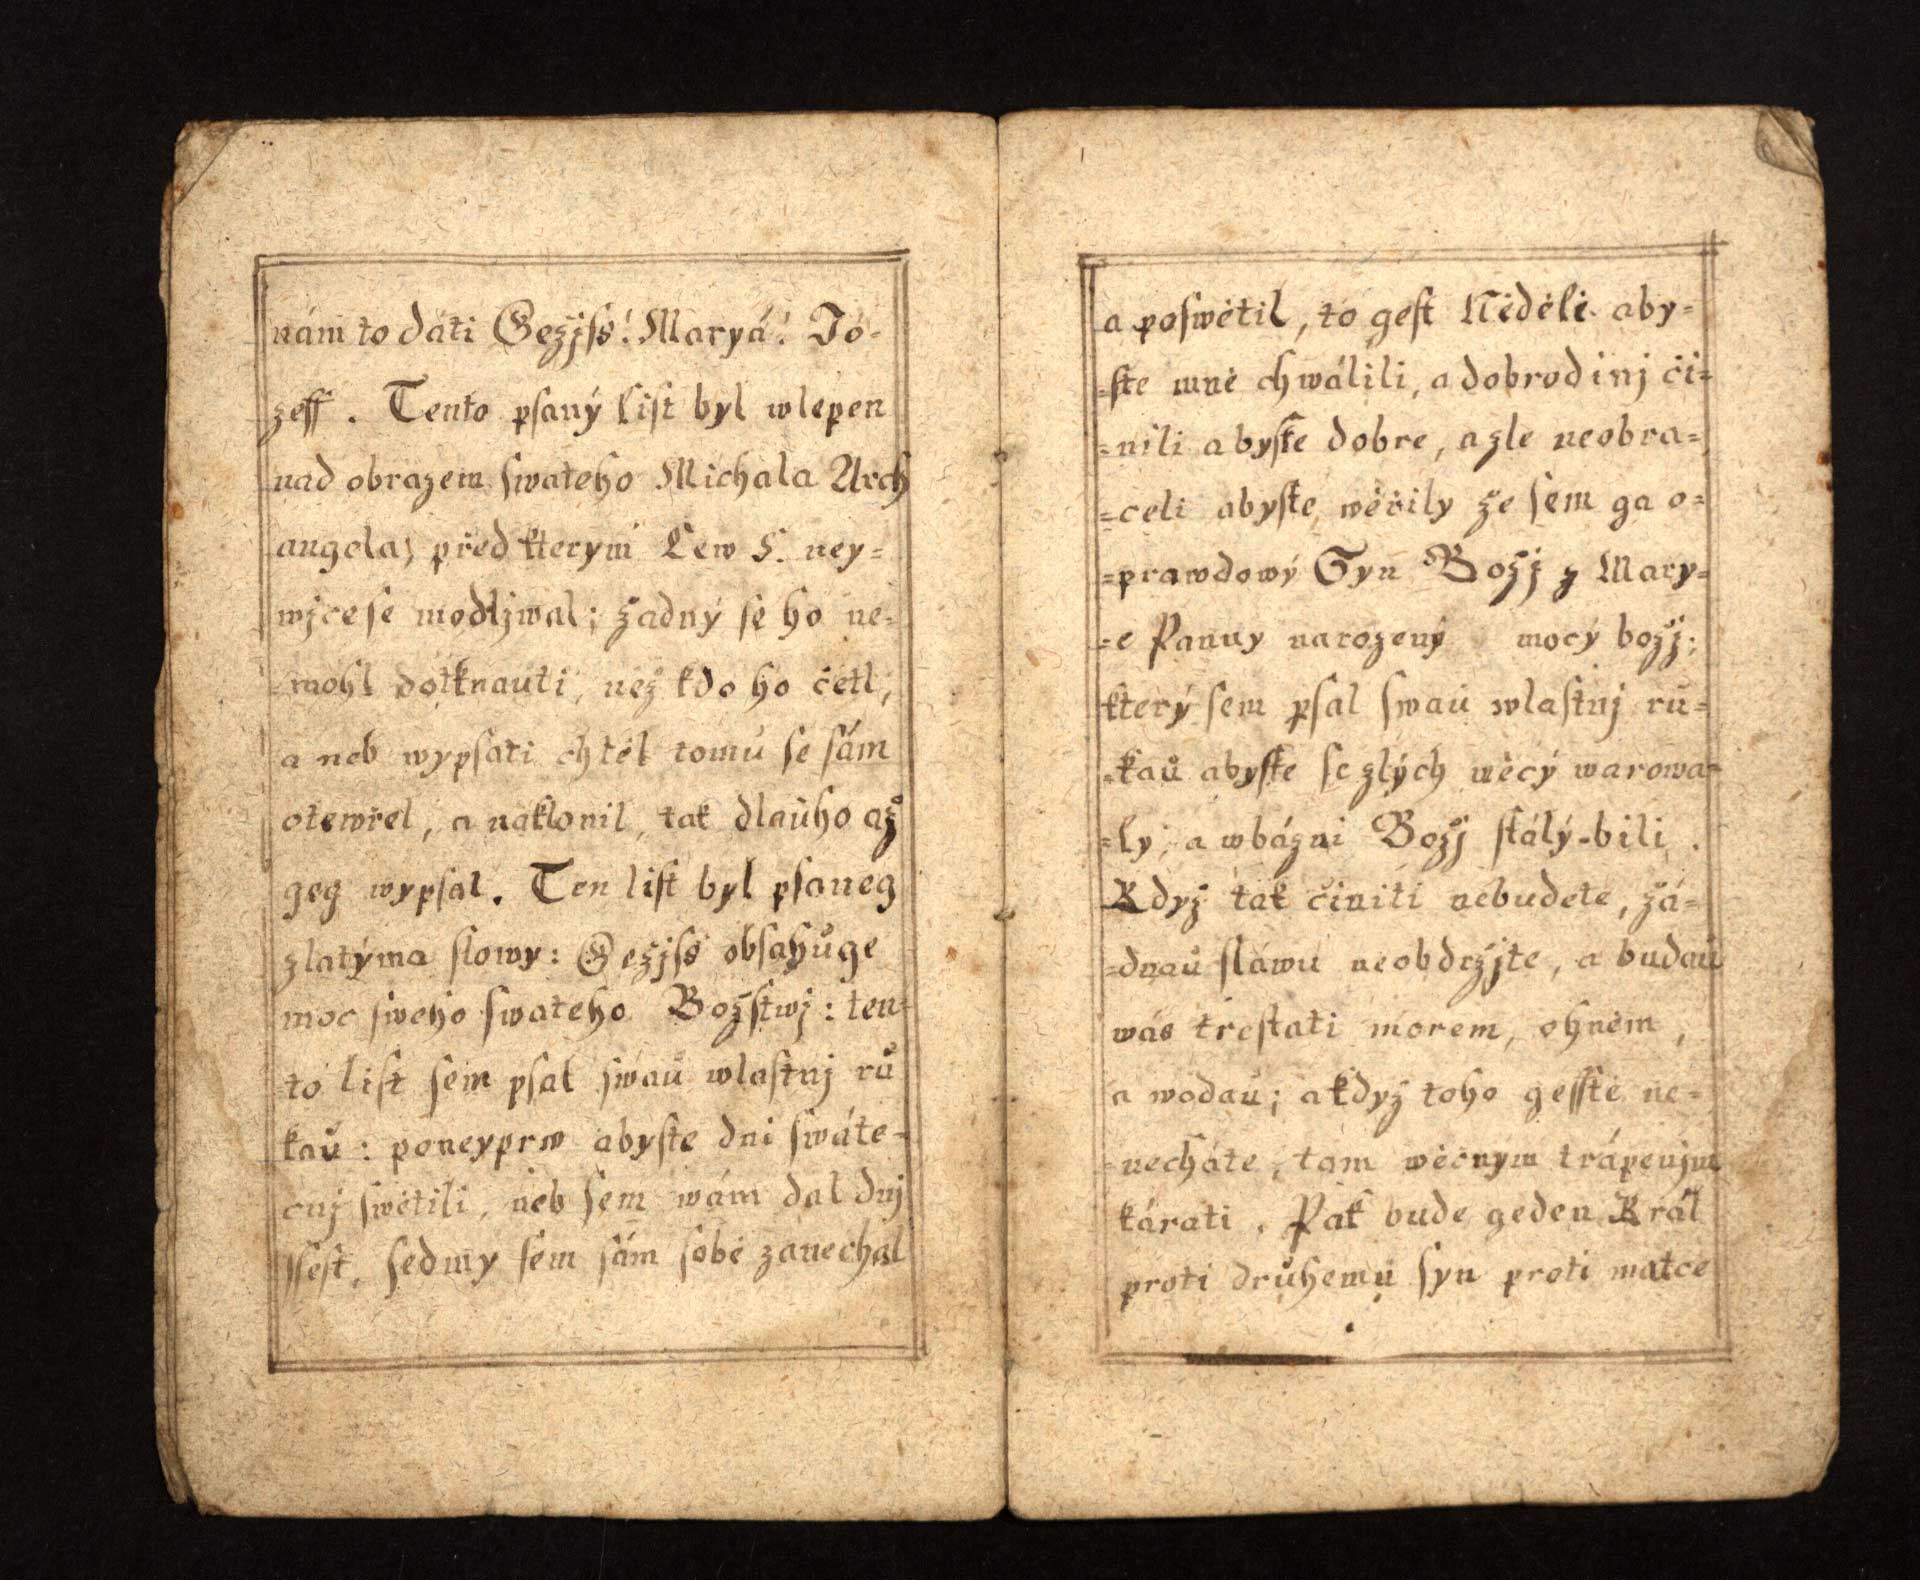 nám to dáti Gežjſs! Marya! Jo-
zeff. Tento pſaný liſt byl wlepen
nad obrazem ſwateho Michala Arch
angela, před kterym Lew 5. ney=
wjce ſe modljwal; žadný ſe ho ne-
mohl dotknauti, než kdo ho četl,
a neb wypſati chtěl tomu ſe ſám
otewřel, a naklonil, tak dlauho až
geg wypſal. Ten liſt byl pſaneg
zlatýma ſlowy: Gežjſs obſahuge
moc ſweho ſwateho Božſtwj: ten-
to liſt ſem pſal ſwau wlaſtnj ru
kau: poneyprw abyſte dni ſwáte-
cnj ſwětili, neb ſem wám dal dnj
ſſeſt, ſedmy ſem ſám ſobě zanechal
a poſwětil, to geſt Něděle. aby=
=ſte mně chwálili, a dobrodinj či=
=nili abyſte dobre, a zle neobra=
=celi abyſte wěřily že ſem ga o=
=prawdowý Syn Božj z Mary=
=e Panny narozený mocý božj;
který ſem pſal ſwau wlaſtnj ru=
=kau abyſte ſe zlých wěcý warowa=
=ly, a wbázni Božj ſtálý-bili.
Když tak činiti nebudete, žá=
=dnau ſláwu neobdržjte, a budau
wás treſtati morem, ohněm,
a wodau; a když toho geſſtě ne=
=nechate, tam wěčnym trápenjm
kárati. Pak bude geden Král
proti druhemu ſyn proti matce